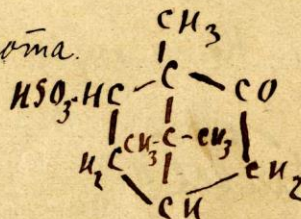 ота.
CH₃
HSO₃·HC C CO
CH₃-C-CH₃
H₂C CH₂
CH